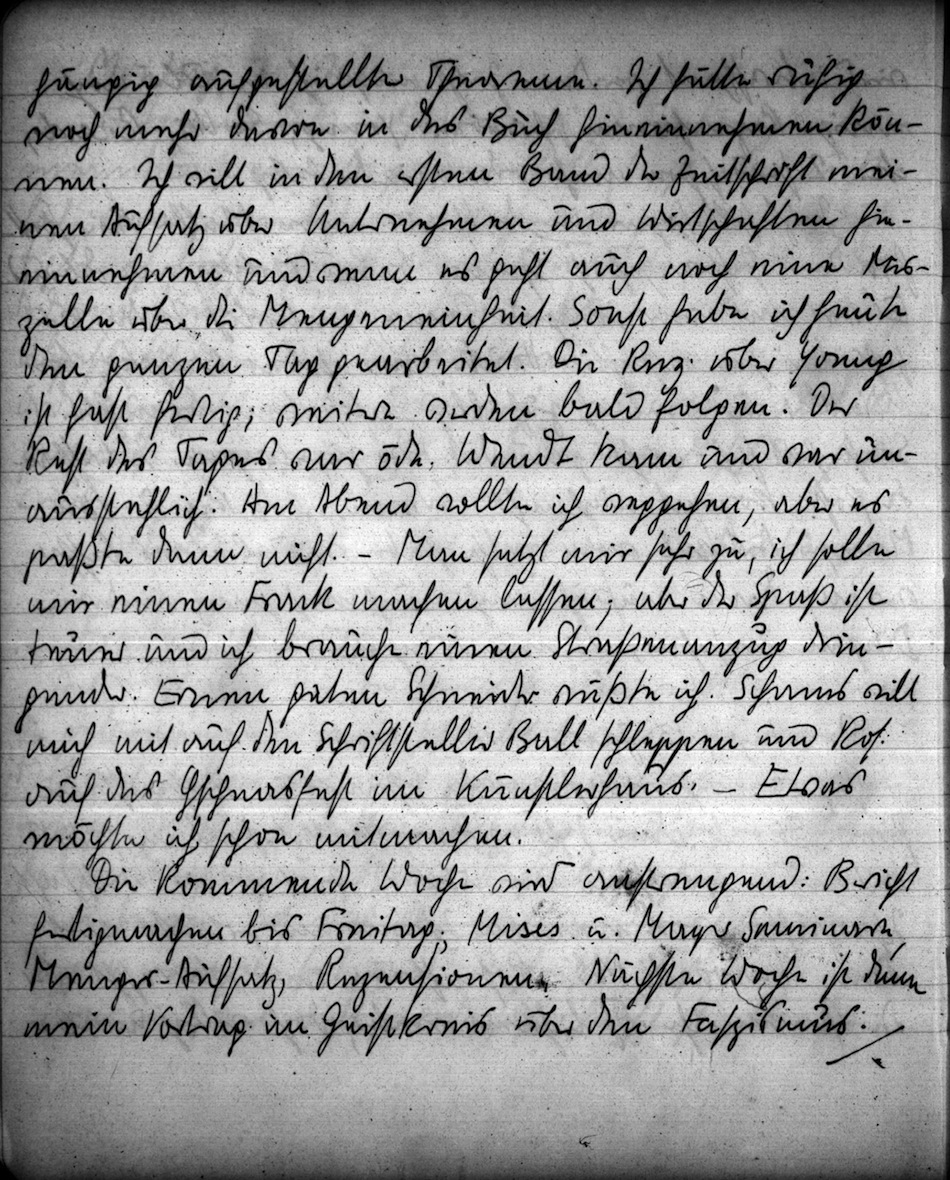 hängig aufgestellte Theoreme. Ich hätte ruhig
noch mehr davon in das Buch hineinnehmen kön-
nen. Ich will in den ersten Band der Zeitschrift mei-
nen Aufsatz über Unternehmen und Wirtschaften hin-
einnehmen und wenn es geht auch noch eine
über die Mengeneinheit. Sonst habe ich heute
den ganzen Tag gearbeitet. Die Rez. über Young
ist fast fertig; weitere werden bald folgen. Der
Rest des Tages war öde. Wendt kam und war un-
ausstehlich. Am Abend wollte ich weggehen, aber es
paßte dann nicht. – Man setzt mir sehr zu, ich solle
mir einen Frack machen lassen; aber der Spaß ist
teuer und ich brauche einen Straßenanzug drin-
gender. Einen guten Schneider wüßte ich. Schams will
mich mit auf den Schriftsteller Ball schleppen und Ros.
auf das Gschnasfest im Künstlerhaus. – Etwas
möchte ich schon mitmachen.
Die kommende Woche wird anstrengend: Bericht
fertigmachen bis Freitag; Mises u. Mayer Seminare,
Menger-Aufsatz, Rezensionen. Nächste Woche ist dann
mein Vortrag im Geistkreis über den Faszismus.